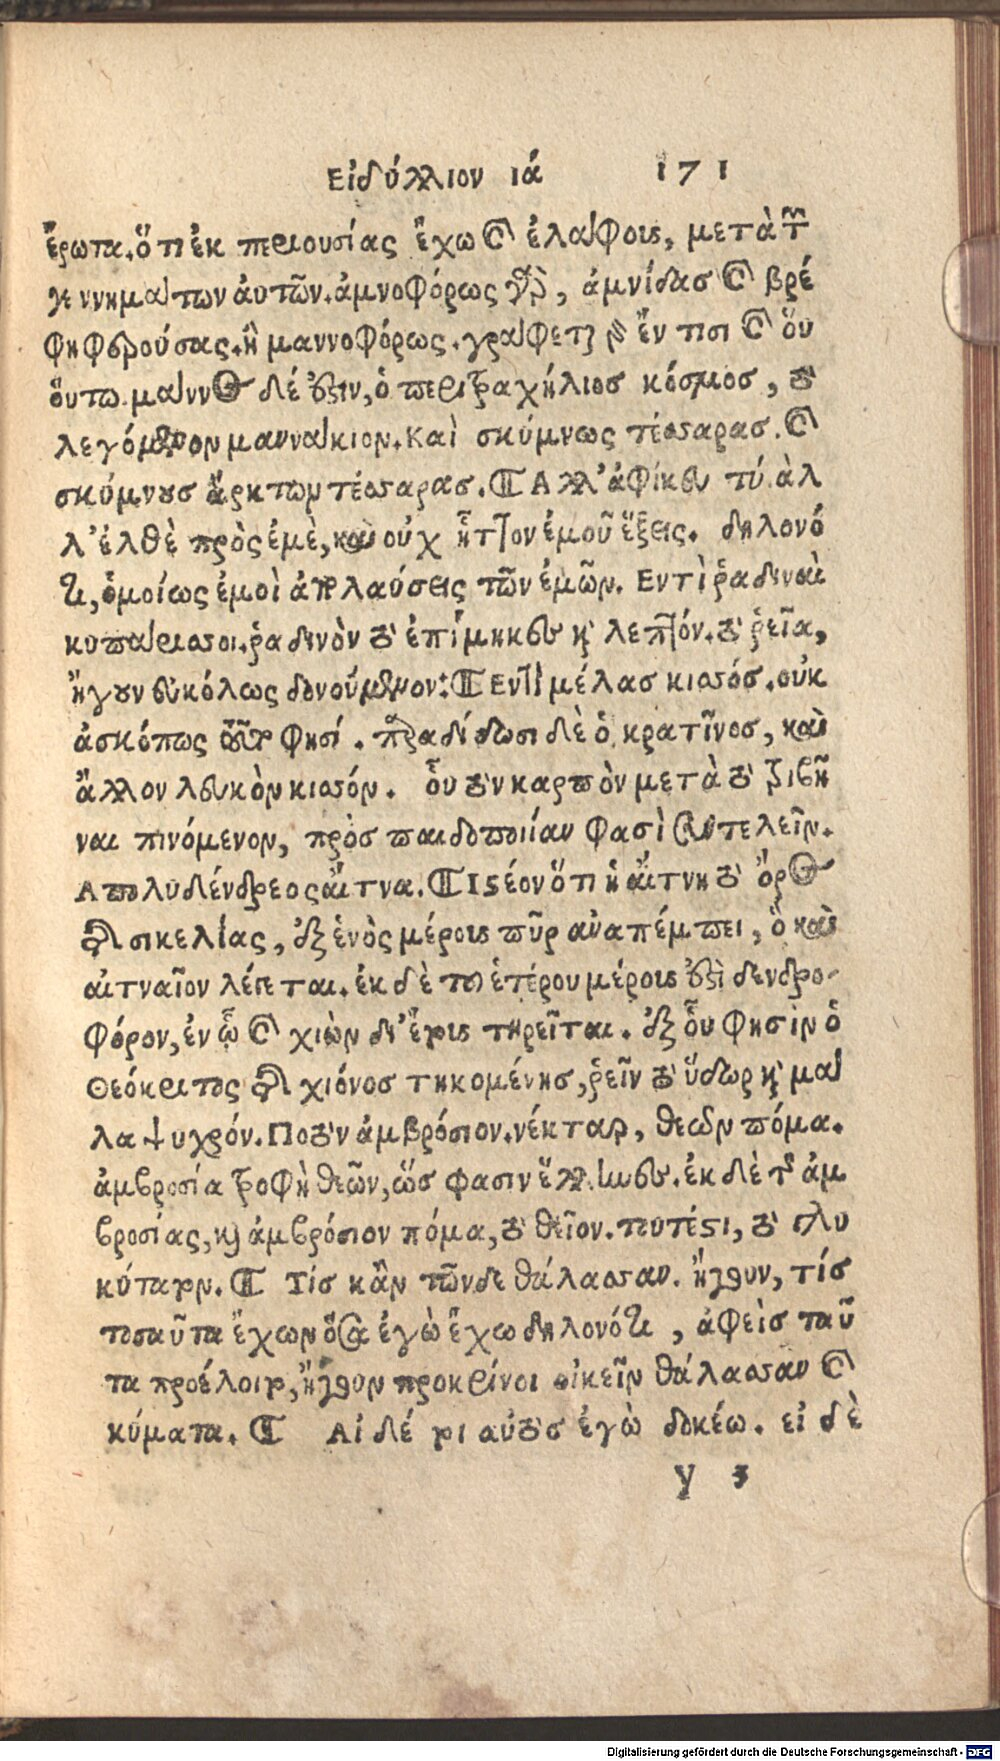 Εἰδύλλιον ιά 171
ἔρωτα. ὅτι ἐκ περιουσίας ἔχω καὶ ἐλάφους, μετὰ τῶν
γεννημάτων ἀυτῶν. ἀμνοφόρως γὰρ, ἀμνίδας καὶ βρέ
φη φερούσας. ἢ μαννοφόρως. γράφεται γὰρ ἔν τισι καὶ ὅυ
ὅυτω. μάννος δέ ἐστιν, ὁ περιτραχήλιος κόσμος, τὸ
λεγόμενον μαννάκιον. Καὶ σκύμνως τέσσαρας. καὶ
σκύμνους ἄρκτων τέσσαρας. ¶ Αλλ' ἀφίκευ τύ. ἀλ
λ' ἐλθὲ πρὸς ἐμὲ, καὶ οὐχ ἧττον ἐμοῦ ἕξεις. δηλονό
τι, ὁμοίως ἐμοὶ ἀπολαύσεις τῶν ἐμῶν. Εντὶ ῥαδιναὶ
κυπάρισσοι. ῥαδινὸν τὸ ἐπίμηκες καὶ λεπτόν. τὸ ῥεῖα,
ἤγουν εὐκόλως δονούμενον: ¶ Εντὶ μέλας κισσός. οὐκ
ἀσκόπως τοῦτο φησί. παραδίδωσι δὲ ὁ κρατῖνος, καὶ
ἄλλον λευκὸν κισσόν. οὗ τὸν καρπὸν μετὰ τὸ τριβῆ
ναι πινόμενον, πρὸς παιδοποιίαν φασὶ συντελεῖν.
Α πολυδένδρεος αἴτνα. ¶ Ιστέον ὅτι ἡ αἴτνη τὸ ὄρος
τῆς σικελίας, ἐξ ἑνὸς μέρους πῦρ ἀναπέμπει, ὃ καὶ
αἰτναῖον λέγεται. ἐκ δὲ τοῦ ἑτέρου μέρους ἐστὶ δενδρο-
φόρον, ἐν ᾧ καὶ χιὼν δι' ἔτους τηρεῖται. ἐξ οὗ φησιν ὁ
Θεόκριτος τῆς χιόνος τηκομένης, ῥεῖν τὸ ὕδωρ καὶ μά
λα ψυχρόν. Ποτὸν ἀμβρόσιον. νέκταρ, θεῶν πόμα.
ἀμβροσία τροφὴ θεῶν, ὥς φασιν ἕλληνες. ἐκ δὲ τῆς ἀμ
βροσίας, καὶ ἀμβρόσιον πόμα, τὸ θεῖον. τουτέστι, τὸ γλυ
κύτατον. ¶ Τίς κἂν τῶνδε θάλασσαν. ἤγουν, τίς
τοσαῦτα ἔχων ὅσα ἐγὼ ἔχω δηλονότι, ἀφεὶς ταῦ
τα προέλοιτο, ἤγουν προκρίνοι οἰκεῖν θάλασσαν καὶ
κύματα. ¶ Αἰ δέ τοι αὐτὸς ἐγὼ δοκέω. εἰ δὲ
y 3
Digitalisierung gefördert durch die Deutsche Forschungsgemeinschaft - DFG